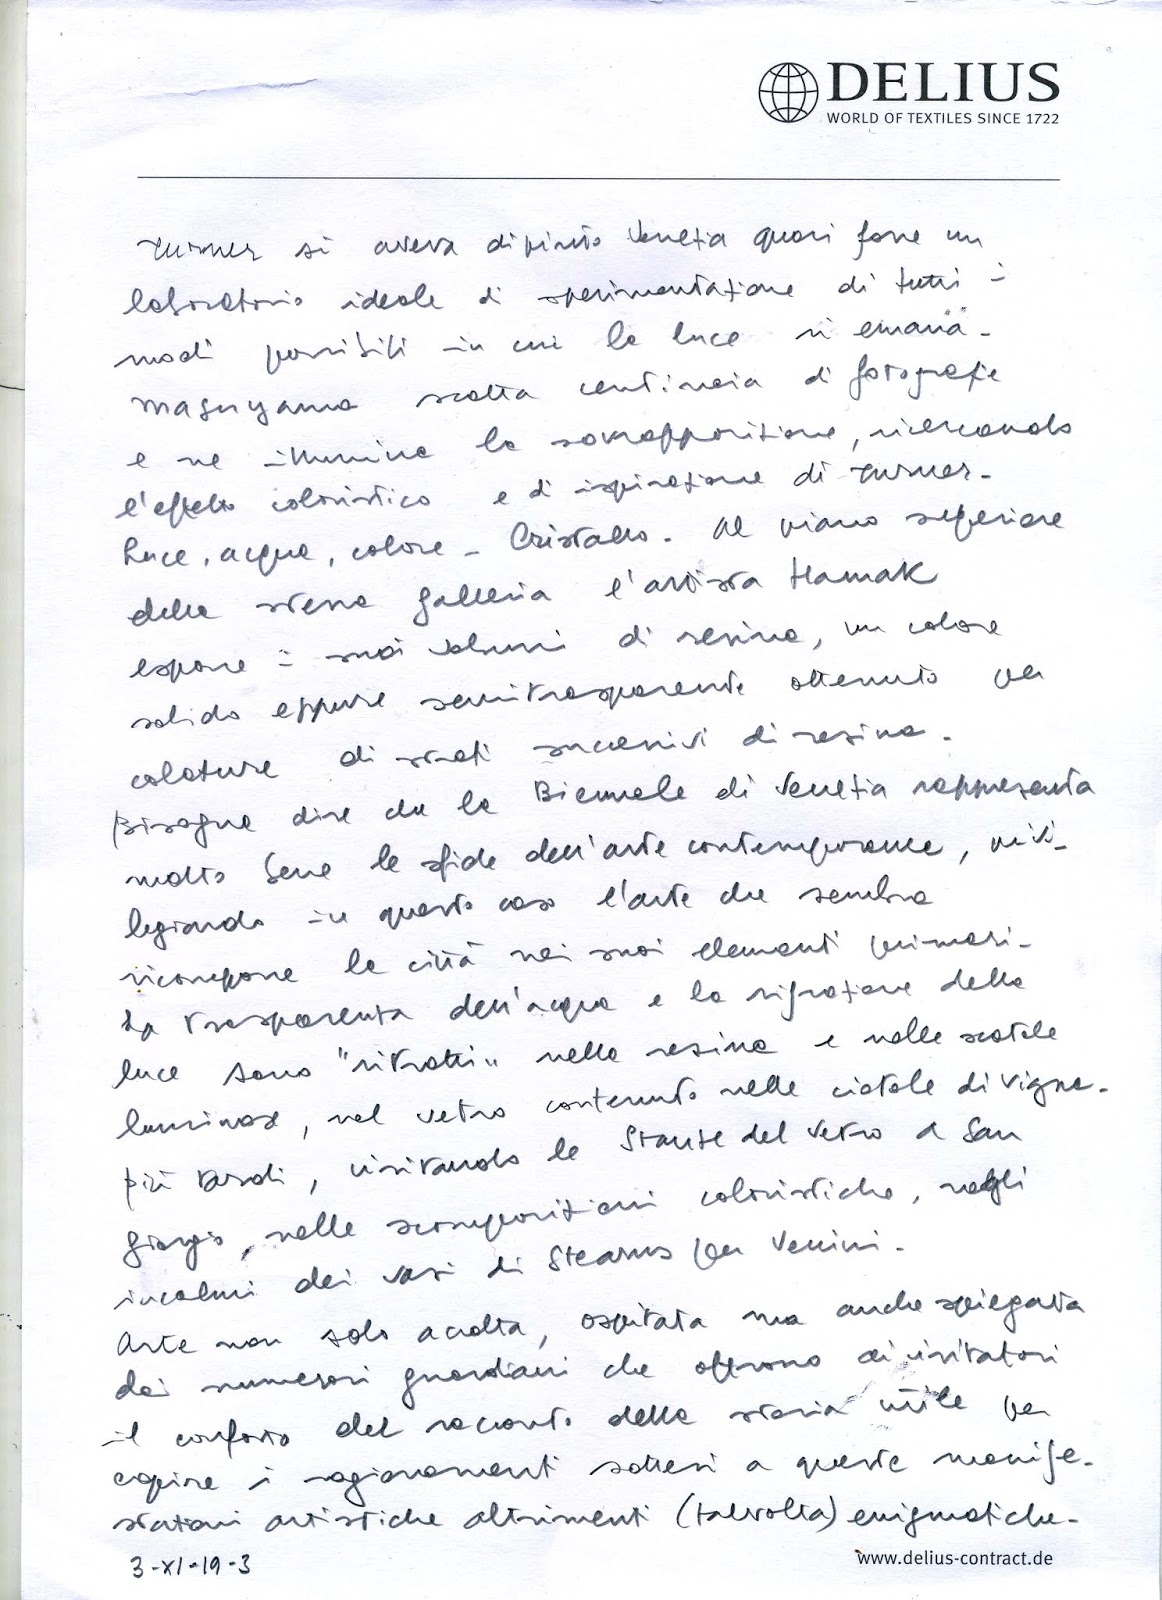 DELIUS
WORLD OF TEXTILES SINCE 1722
Turner si aveva dipinto Venezia quasi fosse un
laboratorio ideale di sperimentazione di tutti i
modi possibili in cui la luce si emana.
Masuyama scatta centinaia di fotografie
e ne illumina la sovrapposizione, ricercando
l'effetto coloristico e di ispirazione di Turner.
Luce, acqua, colore - Cristallo. Al piano superiore
della stessa galleria l'artista Hamak
espone i suoi volumi di resina, un colore
solido eppure semitrasparente ottenuto per
colature di strati successivi di resina.
Bisogna dire che la Biennale di Venezia rappresenta
molto bene le sfide dell'arte contemporanea, privi-
legiando in questo caso l'arte che sembra
ricomporre la città nei suoi elementi primari.
La trasparenza dell'acqua e la rifrazione della
luce sono "ritratti" nella resina e nelle scatole
luminose, nel vetro contenuto nelle ciotole di Vigna.
più tardi, visitando le Stanze del Vetro a San
Giorgio, nelle scomposizioni coloristiche, negli
incalmi dei vasi di Stearns per Venini.
Arte non solo accolta, ospitata ma anche spiegata
dai numerosi guardiani che offrono ai visitatori
il conforto del racconto della storia utile per
capire i ragionamenti sottesi a queste manife-
stazioni artistiche altrimenti (talvolta) enigmatiche.
3-XI-19-3
www.delius-contract.de